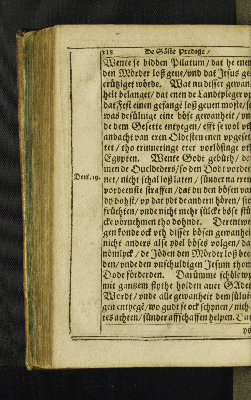 118 De Söste Predige/
Wente se bidden Pilatum/ dat he enen
den Mörder loß geue/vnd dat Jesus ge-
crütziget würde. Wat nu disser gewan-
heit belanget/ dat enen de Landtpleger vp
dat Fest einen gefange loß geuen moste/
was desüluige ene böse gewanheit/
de dem Gesette entyegen/ efft se wol
andacht van eren Oldesten enen vpgeset-
tet/ tho erinneringe erer vorlösinge
Egypten. Wente Godt gebüth/
men de Oueldeders/so den Dodt vorde-
Deut. 19. net/ nicht schal loß laten/ sünder na eren
vordenste straffen/dat du den bösen
dy dohst/ vp dat ydt de andern hören/
früchten/ vnde nicht mehr sülcke böse stü-
cke vornehmen tho dohnde. Derentwe-
gen konde ock vth disser bösen gewanheit
nicht anders alse ydel böses volgen/
nömlyck/ de Jöden den Mörder loß
den/vnde den vnschuldigen Jesum thom
Dode förderden. Darümme schöle wy
mit gantzem flyte holden auer Gades
Wordt/ vnde alle gewanheit dem sülui-
gen entyegen/ wo gudt se ock schynen/ nich-
tes achten/ sünder affschaffen helpen.